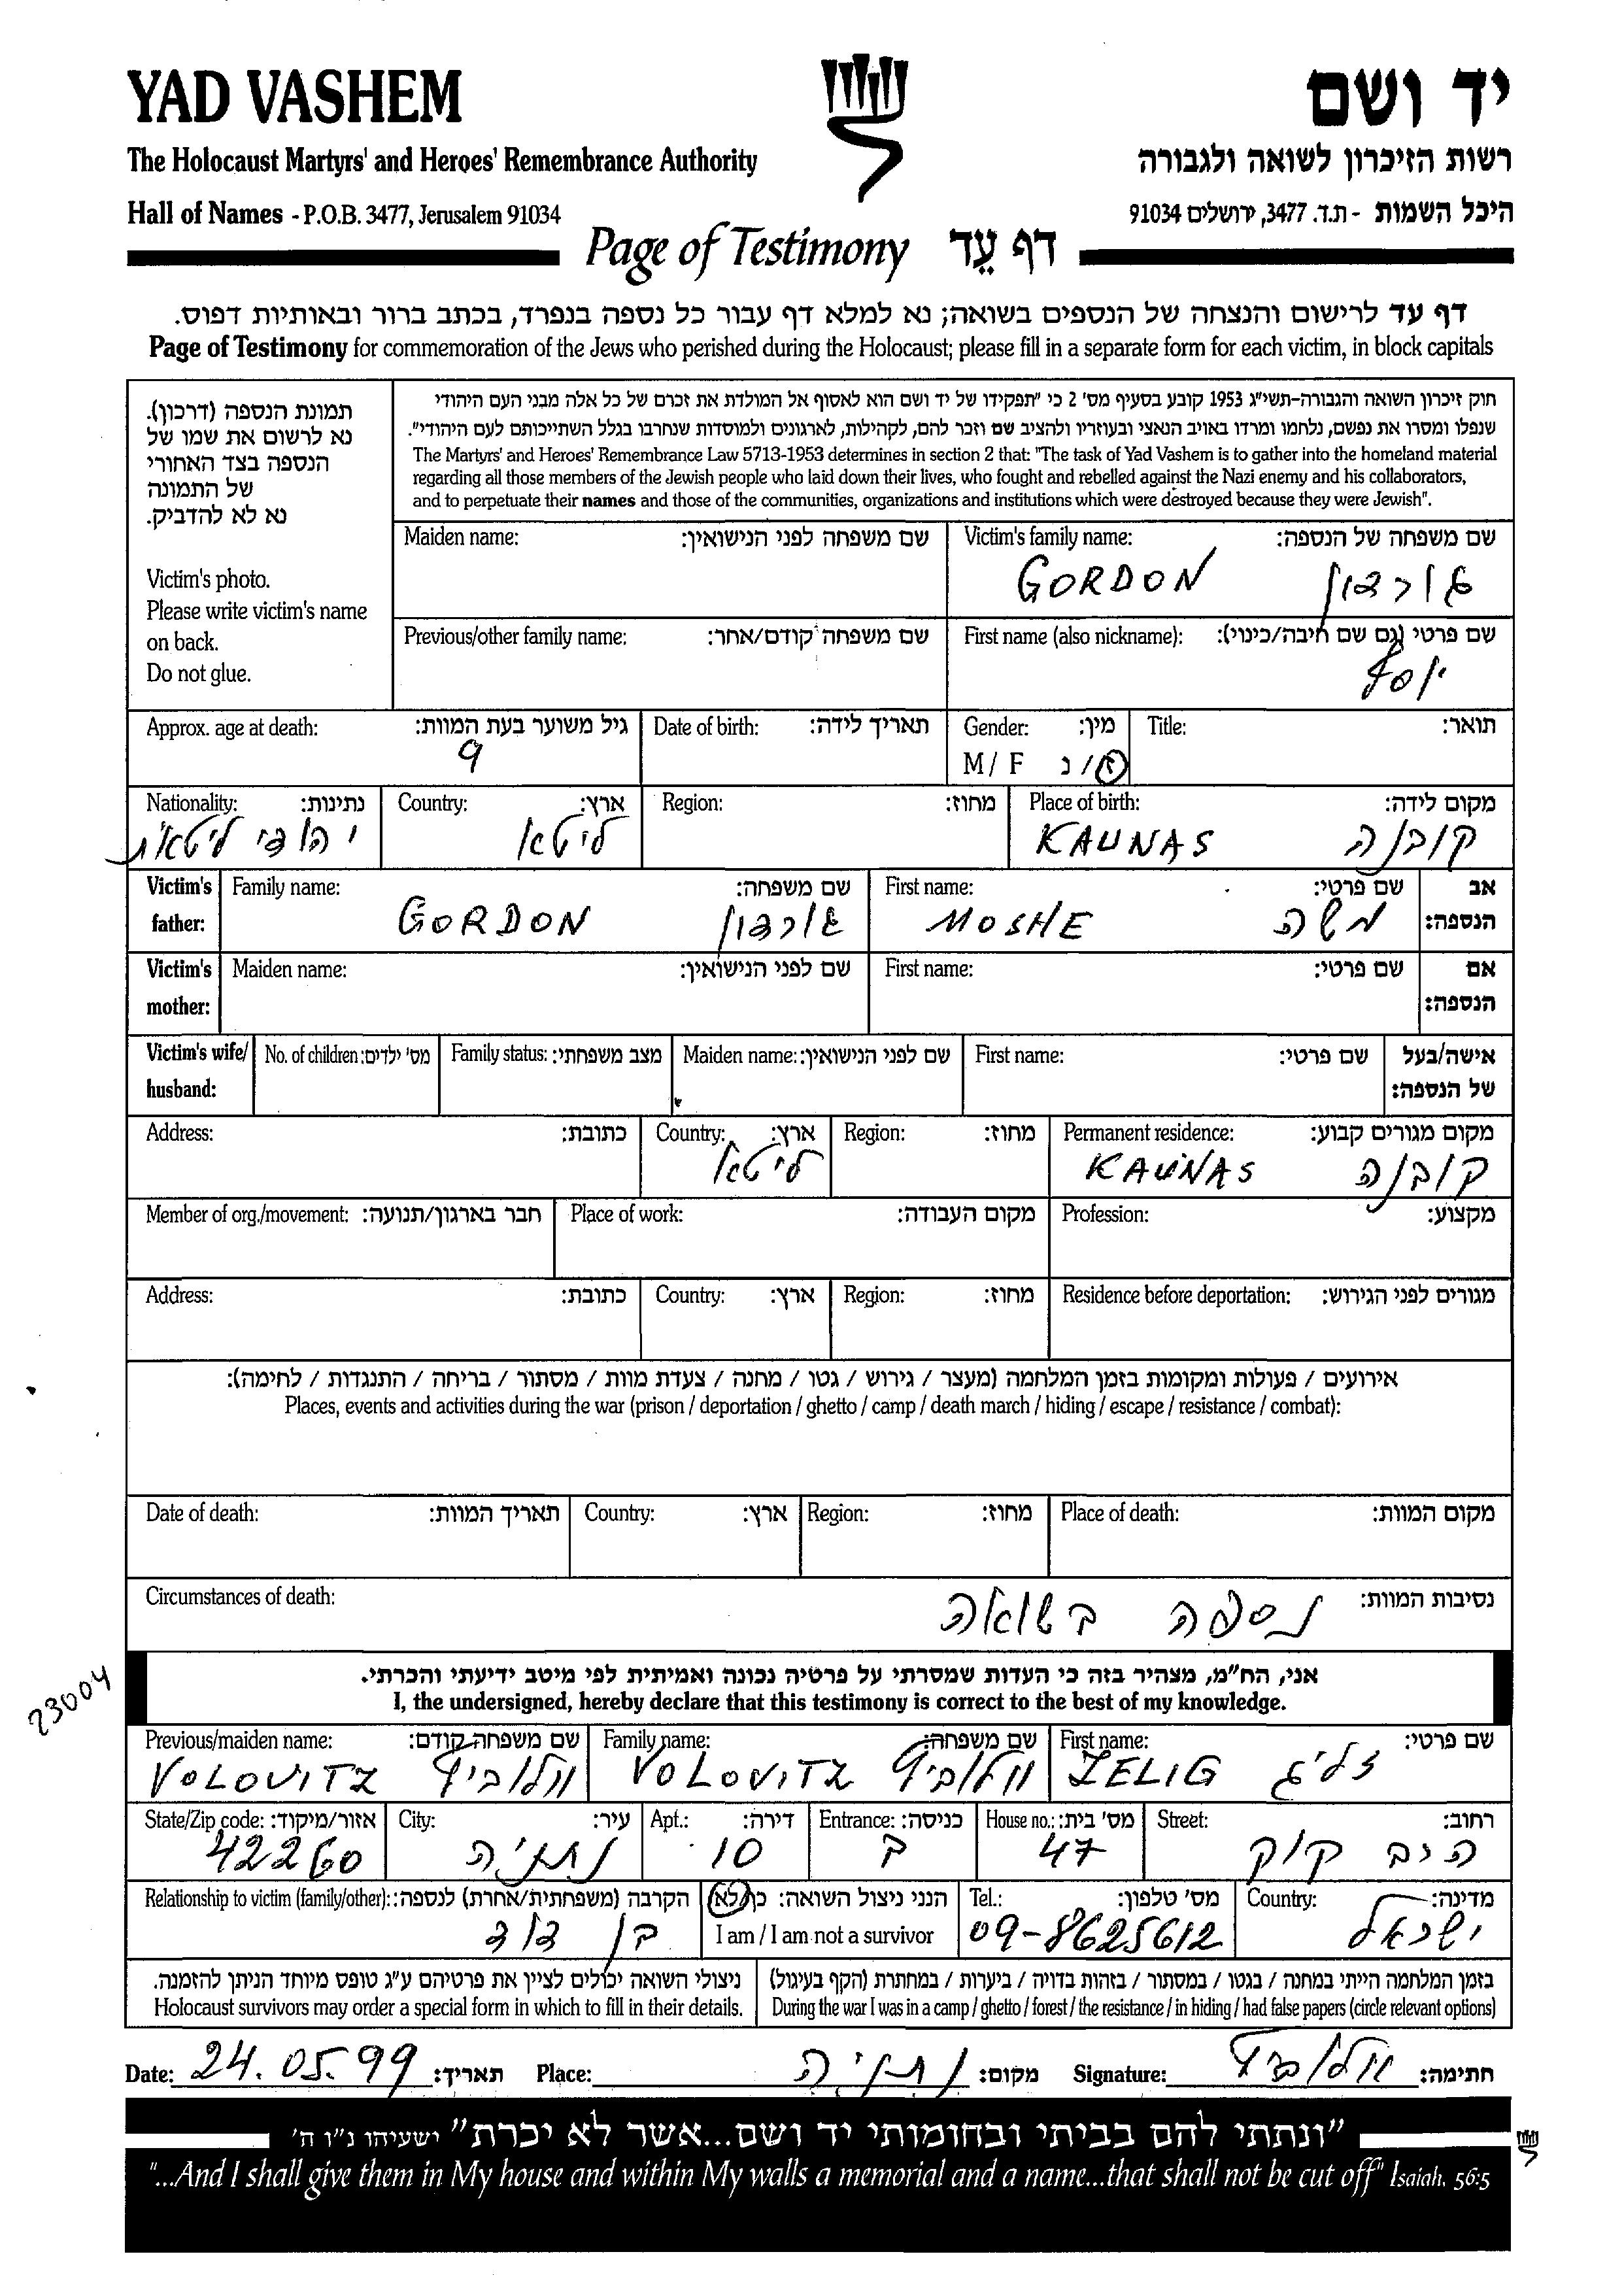 YAD VASHEM
יד ושם
The Holocaust Martyrs' and Heroes' Remembrance Authority
רשות הזיכרון לשואה ולגבורה
Hall of Names - P.O.B. 3477, Jerusalem 91034
היכל השמות - ת.ד. 3477, ירושלים 91034
Page of Testimony דף עֵד
דף עד לרישום והנצחה של הנספים בשואה; נא למלא דף עבור כל נספה בנפרד, בכתב ברור ובאותיות דפוס.
Page of Testimony for commemoration of the Jews who perished during the Holocaust; please fill in a separate form for each victim, in block capitals
תמונת הנספה (דרכון).
נא לרשום את שמו של
הנספה בצד האחורי
של התמונה
נא לא להדביק.
Victim's photo.
Please write victim's name
on back.
Do not glue.
חוק זיכרון השואה והגבורה-תשי"ג 1953 קובע בסעיף מס' 2 כי "תפקידו של יד ושם הוא לאסוף אל המולדת את זכרם של כל אלה מבני העם היהודי
שנפלו ומסרו את נפשם, נלחמו ומרדו באויב הנאצי ובעוזריו ולהציב שם וזכר להם, לקהילות, לארגונים ולמוסדות שנחרבו בגלל השתייכותם לעם היהודי".
The Martyrs' and Heroes' Remembrance Law 5713-1953 determines in section 2 that: "The task of Yad Vashem is to gather into the homeland material
regarding all those members of the Jewish people who laid down their lives, who fought and rebelled against the Nazi enemy and his collaborators,
and to perpetuate their names and those of the communities, organizations and institutions which were destroyed because they were Jewish".
Maiden name: שם משפחה לפני הנישואין:
Victim's family name: שם משפחה של הנספה:
GORDON גורדון
Previous/other family name: שם משפחה קודם/אחר:
First name (also nickname): שם פרטי (גם שם חיבה/כינוי):
יוסף
Approx. age at death: גיל משוער בעת המוות:
9
Date of birth: תאריך לידה:
Gender: מין:
M / F ז / נ
Title: תואר:
Nationality: נתינות:
יהודי ליטאית
Country: ארץ:
ליטא
Region: מחוז:
Place of birth: מקום לידה:
KAUNAS קובנה
Victim's father: אב הנספה:
Family name: שם משפחה:
GORDON גורדון
First name: שם פרטי:
MOSHE משה
Victim's mother: אם הנספה:
Maiden name: שם לפני הנישואין:
First name: שם פרטי:
Victim's wife/ husband: אישה/בעל של הנספה:
No. of children: מס' ילדים:
Family status: מצב משפחתי:
Maiden name: שם לפני הנישואין:
First name: שם פרטי:
Address: כתובת:
Country: ארץ:
ליטא
Region: מחוז:
Permanent residence: מקום מגורים קבוע:
KAUNAS קובנה
Member of org./movement: חבר בארגון/תנועה:
Place of work: מקום העבודה:
Profession: מקצוע:
Address: כתובת:
Country: ארץ:
Region: מחוז:
Residence before deportation: מגורים לפני הגירוש:
אירועים / פעולות ומקומות בזמן המלחמה (מעצר / גירוש / גטו / מחנה / צעדת מוות / מסתור / בריחה / התנגדות / לחימה):
Places, events and activities during the war (prison / deportation / ghetto / camp / death march / hiding / escape / resistance / combat):
Date of death: תאריך המוות:
Country: ארץ:
Region: מחוז:
Place of death: מקום המוות:
Circumstances of death: נסיבות המוות:
נספה בשואה
23004
אני, הח"מ, מצהיר בזה כי העדות שמסרתי על פרטיה נכונה ואמיתית לפי מיטב ידיעתי והכרתי.
I, the undersigned, hereby declare that this testimony is correct to the best of my knowledge.
Previous/maiden name: שם משפחה קודם:
VOLOVITZ וולוביץ
Family name: שם משפחה:
VOLOVITZ וולוביץ
First name: שם פרטי:
ZELIG זליג
State/Zip code: אזור/מיקוד:
42260
City: עיר:
נתניה
Apt.: דירה:
10
Entrance: כניסה:
ב
House no.: מס' בית:
47
Street: רחוב:
הרב קוק
Relationship to victim (family/other): הקרבה (משפחתית/אחרת) לנספה:
בן דוד
הנני ניצול השואה: כן/לא
I am / I am not a survivor
Tel.: מס' טלפון:
09-8625612
Country: מדינה:
ישראל
ניצולי השואה יכולים לציין את פרטיהם ע"ג טופס מיוחד הניתן להזמנה.
Holocaust survivors may order a special form in which to fill in their details.
בזמן המלחמה הייתי במחנה / בגטו / במסתור / בזהות בדויה / ביערות / במחתרת (הקף בעיגול)
During the war I was in a camp / ghetto / forest / the resistance / in hiding / had false papers (circle relevant options)
Date: 24.05.99 תאריך: Place: נתניה מקום: Signature: וולוביץ חתימה:
"ונתתי להם בביתי ובחומותי יד ושם...אשר לא יכרת" ישעיהו נ"ו ה'
"...And I shall give them in My house and within My walls a memorial and a name...that shall not be cut off" Isaiah. 56:5